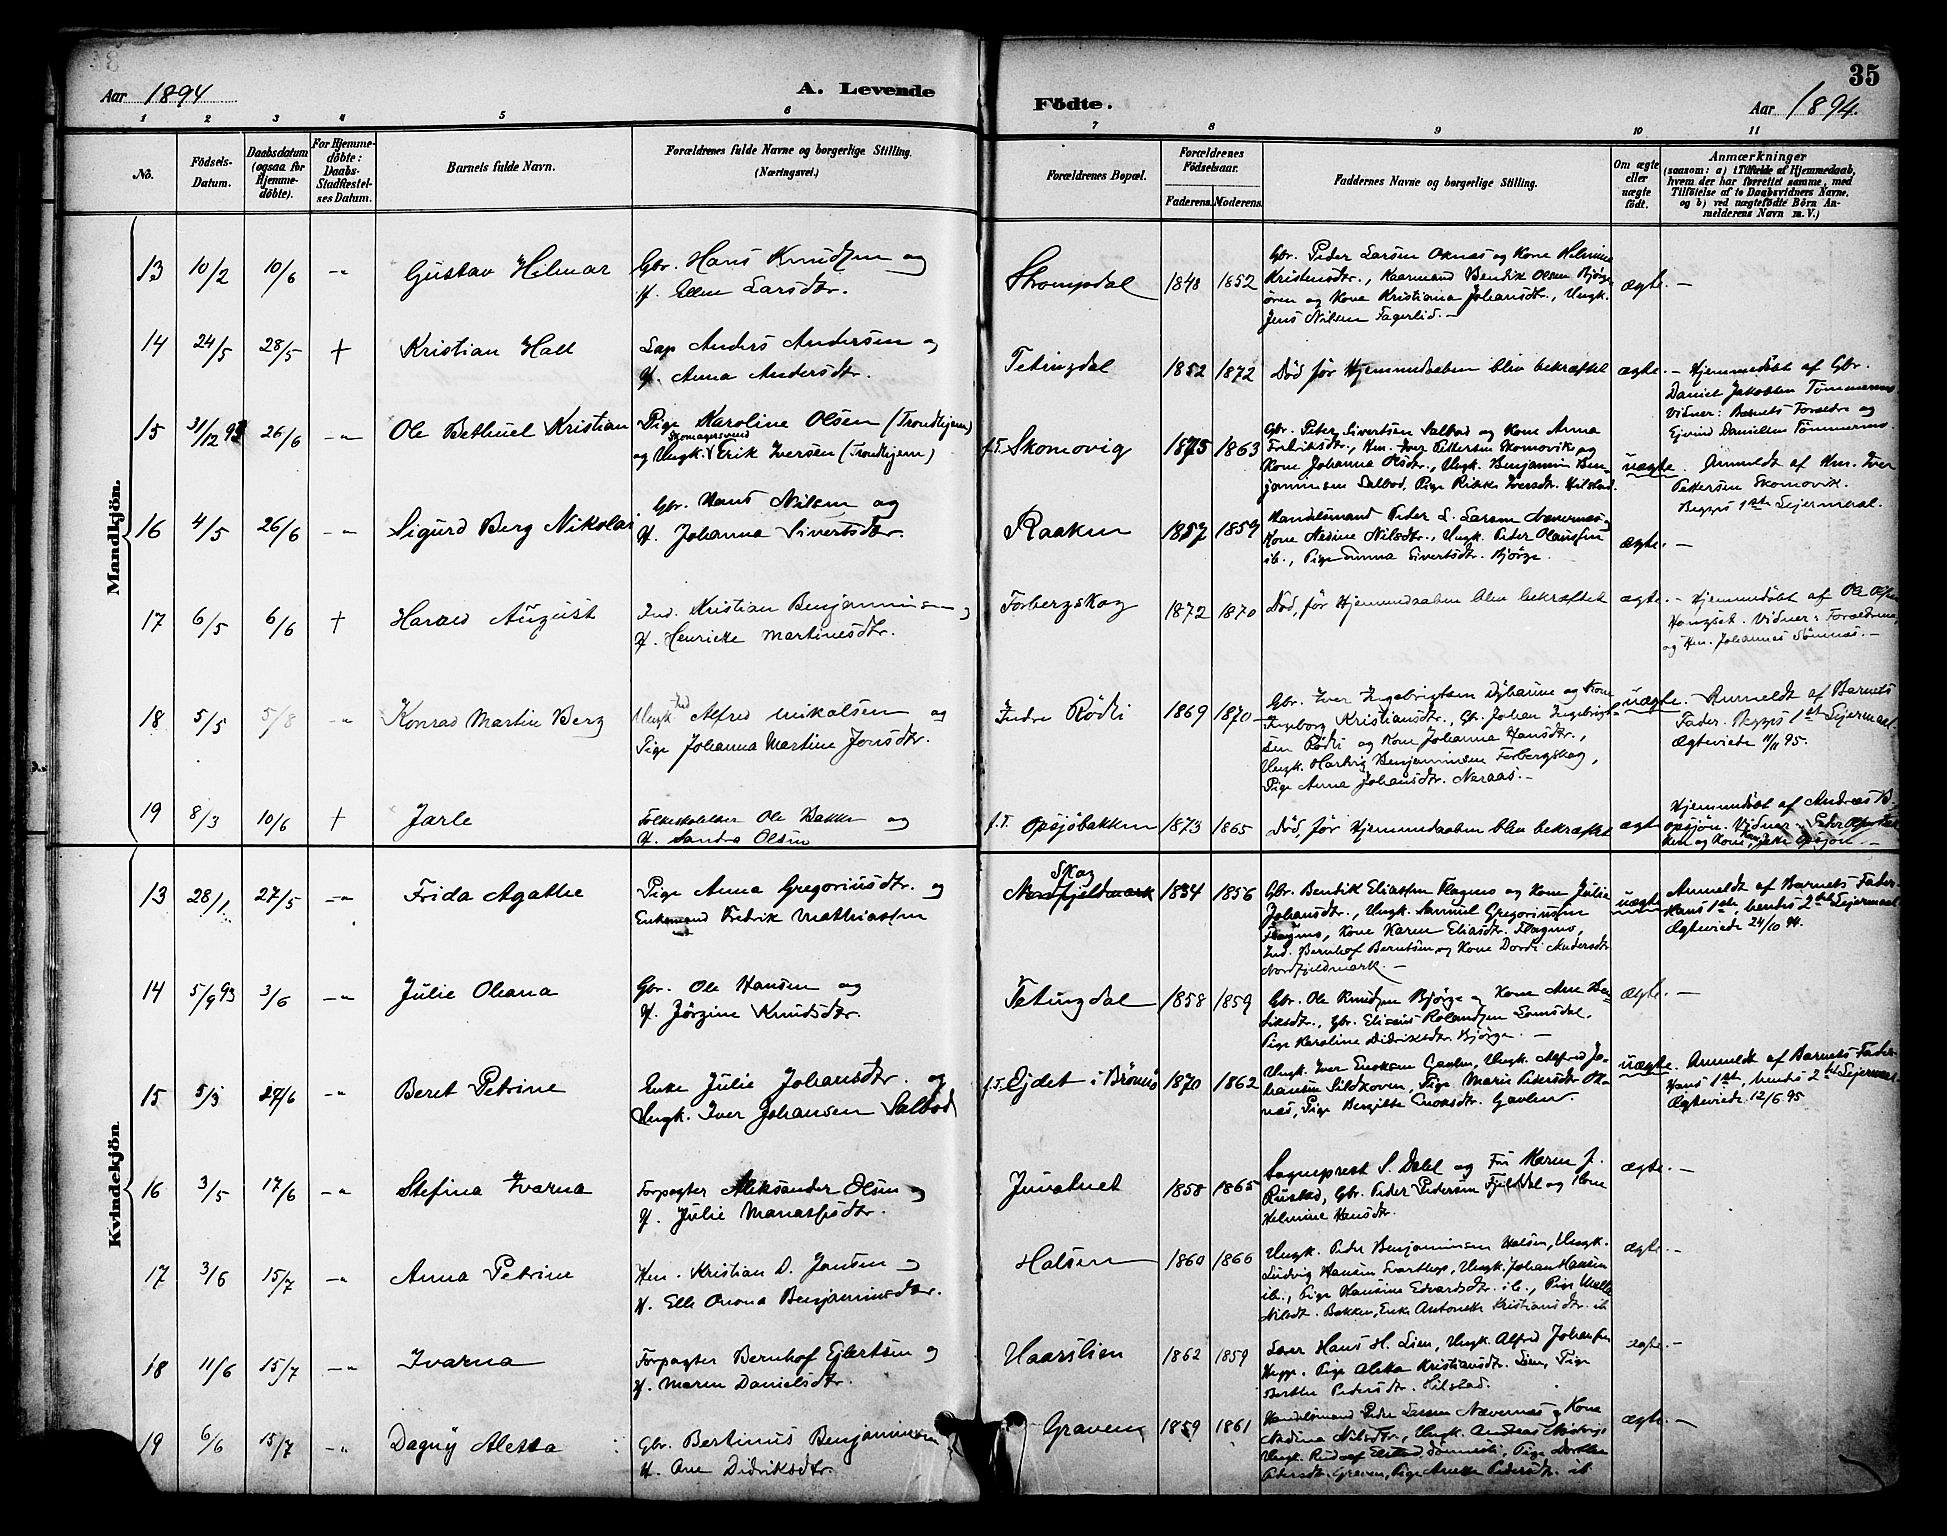 35
Aar 1894
A. Levende
Födte.
Aar 1894.
1 2 3 4 5 6 7 8 9 10 11
No.
Födsels-
Datum.
Daabsdatum
(ogsaa for
Hjemme-
döbte).
For Hjemme-
döbte:
Daabs-
Stadfæstel-
ses Datum.
Barnets fulde Navn.
Forældrenes fulde Navne og borgerlige Stilling.
(Næringsvei.)
Forældrenes Bopæl.
Forældrenes
Födselsaar.
Faderens. Moderens.
Faddernes Navne og borgerlige Stilling.
Om ægte
eller
uægte
födt.
Anmærkninger
(saasom: a) i Tilfælde af Hjemmedaab,
hvem der har forrettet samme, med
Tilföielse af to Daabsvidners Navne.
og b) ved uægtefödte Börn An-
melderens Navn m. V.)
Mandkjön.
13 10/2 10/6 -"- Gustav Hilmar
Gbr. Hans Knudsen og
H. Ellen Larsdtr.
Strompdal 1848 1852
Gbr. Peder Larsen Oknas og Kone Helmine
Kristensdtr., Kaarmand Bendik Olsen Bjørg-
ören og Kone Kristiana Johansdtr., Ungk.
Jens Nilsen Fagerlid. -
ægte. -
14 24/5 28/5 + Kristian Hall
Lap Anders Andersen og
H. Anna Andersdtr.
Tetingdal 1852 1872
Död før Hjemmedaaben blev bekræftet
ægte. - Hjemmedöbt af Gbr.
Daniel Jakobsen Tömmermo
Vidner: Barnets Forældre og
Ejvind Danielsen Tömmermo.
15 31/12 93 26/6 -"- Ole Bethuel Kristian
Pige Karoline Olsen (Trondhjem)
Skomagersvend
og Ungk. Erik Iversen (Trondhjem)
f.T. Skomovig 1875 1863
Gbr. Peter Sivertsen Salbod og Kone Anna
Fredriksdtr., Hm. Iver Pettersen Skomovik og
Kone Johanna Olsdtr., Ungk. Benjamin Ben-
jaminsen Salbod, Pige Rikke Iversdtr. Hilstad.
uægte. Anmeldt af Hm. Iver
Pettersen Skomovik.
Begges 1ste Lejermaal.
16 4/5 26/6 -"- Sigurd Berg Nikolai
Gbr. Hans Nilsen og
H. Johanna Sivertsdtr.
Raaken 1857 1859
Handelsmand Peder L. Larsen Nævernes og
Kone Nedine Nilsdtr., Ungk. Peder Olaussen
ib., Pige Emma Sivertsdtr. Bjørge.
ægte. -
17 6/5 6/6 + Harald August
Ind. Kristian Benjaminsen og
H. Henrikke Martinesdtr.
Forbergskog 1872 1870
Död, før Hjemmedaaben blev bekræftet
ægte. - Hjemmedöbt af Ole Olsen
Hongset. Vidner: Forældrene
og Hm. Johannes Sömnes. -
18 5/5 5/8 -"- Konrad Martin Berg
Ungk. Alfred Nikolsen og
Pige Johanna Martine Jensdtr.
Indre Rödli 1869 1870
Gbr. Iver Ingebrigtsen Dyhaune og Kone
Ingeborg Kristiansdtr., Gb. Johan Ingebrigt-
sen Rödli og Kone Johanna Hansdtr.,
Ungk. Hartvig Benjaminsen Forbergskog,
Pige Anna Johansdtr. Naraas. -
uægte. - Anmeldt af Barnets
Fader. Begges 1ste Lejermaal.
Ægteviede 11/11 95.
19 8/3 10/6 + Jarle
Folkeskolelærer Ole Bakken og
H. Sandra Olsen
f.T. Opsjöbakken 1873 1865
Död, før Hjemmedaaben blev bekræftet
ægte
Hjemmedöbt af Andreas B.
Opsjön. Vidner:
Kvindekjön.
13 28/1 27/5 -"- Frida Agathe
Pige Anna Gregoriusdtr. og
Enkemand Fredrik Mathiassen
Skog
Nordfjeldmark 1834 1856
Gbr. Bendik Eliassen Flagmo og Kone Julie
Johansdtr., Ungk. Samuel Gregoriusen
Flagmo, Kone Karen Eliasdtr. Flagmo,
Ind. Bernhof Berntsen og Kone Dordi Andersdtr.
Nordfjeldmark. -
uægte
Anmeldt af Barnets Fader.
Hans 1ste, hendes 2det Lejermaal.
Ægteviede 24/10 94.
14 5/9 93 3/6 -"- Julie Oliana
Gbr. Ole Hansen og
H. Jörgine Knudsdtr.
Tetingdal 1858 1859
Gbr. Ole Knudsen Bjørge og Kone Ane Ben-
diksdtr., Gbr. Eliseus Rolandsen Lomsdal,
Pige Karoline Didriksdtr. Bjørge. -
ægte. -
15 5/3 27/6 -"- Beret Petrine
Enke Julie Johansdtr. og
Ungk. Iver Johansen Salbod
f.T. Ejdet i Brönö 1870 1862
Ungk. Iver Eriksen Gavlen, Ungk. Alfred Jo-
hansen Sildkoven, Pige Maria Pedersdtr. Ok-
nas, Pige Bergitte Enoksdtr. Gavlen.
uægte. Anmeldt af Barnets Fader.
Hans 1ste, hendes 2det Lejermaal.
Ægteviede 12/6 95
16 3/5 17/6 -"- Stefina Ivarna
Forpagter Aleksander Olsen og
H. Julie Manassesdtr.
Juvatnet 1858 1865
Sogneprest S. Dahl og Fru Karen J.
Rustad, Gbr. Peder Pedersen Fjeldal og Kone
Helmine Hansdtr.
ægte. -
17 3/6 15/7 -"- Anna Petrine
Hm. Kristian D. Jansen og
H. Elle Onona Benjaminsdtr.
Halsen 1860 1866
Ungk. Peder Benjaminsen Halsen, Ungk.
Ludvig Hansen Svartkop, Ungk. Johan Hansen
ib., Pige Hansine Edvardsdtr. ib., Pige
Nilsdt. Bakken, Enke Antonette Kristiansdtr. ib
ægte. -
18 11/6 15/7 -"- Ivarna
Forpagter Bernhof Ejlertsen og
H. Maren Danielsdtr.
Haarslien 1862 1859
Hans H. Lien, Ungk. Alfred Johansen
Hegge, Pige Aletta Kristiansdtr. Lien, Pige
Berthe Pedersdtr. Hilstad.
ægte. -
19 6/6 15/7 -"- Dagny Aletta
Gbr. Bertinus Benjaminsen
H. Ane Didriksdtr.
Graven 1859 1861
Handelsmand Peder Larsen Nævernes og Kone
Nedina Nilsdtr., Ungk. Andreas
Ungk. Rudolf Elstad, Pige Dorthea
Pedersdt. Graven, Pige Anette Pedersdt. ib
ægte. -